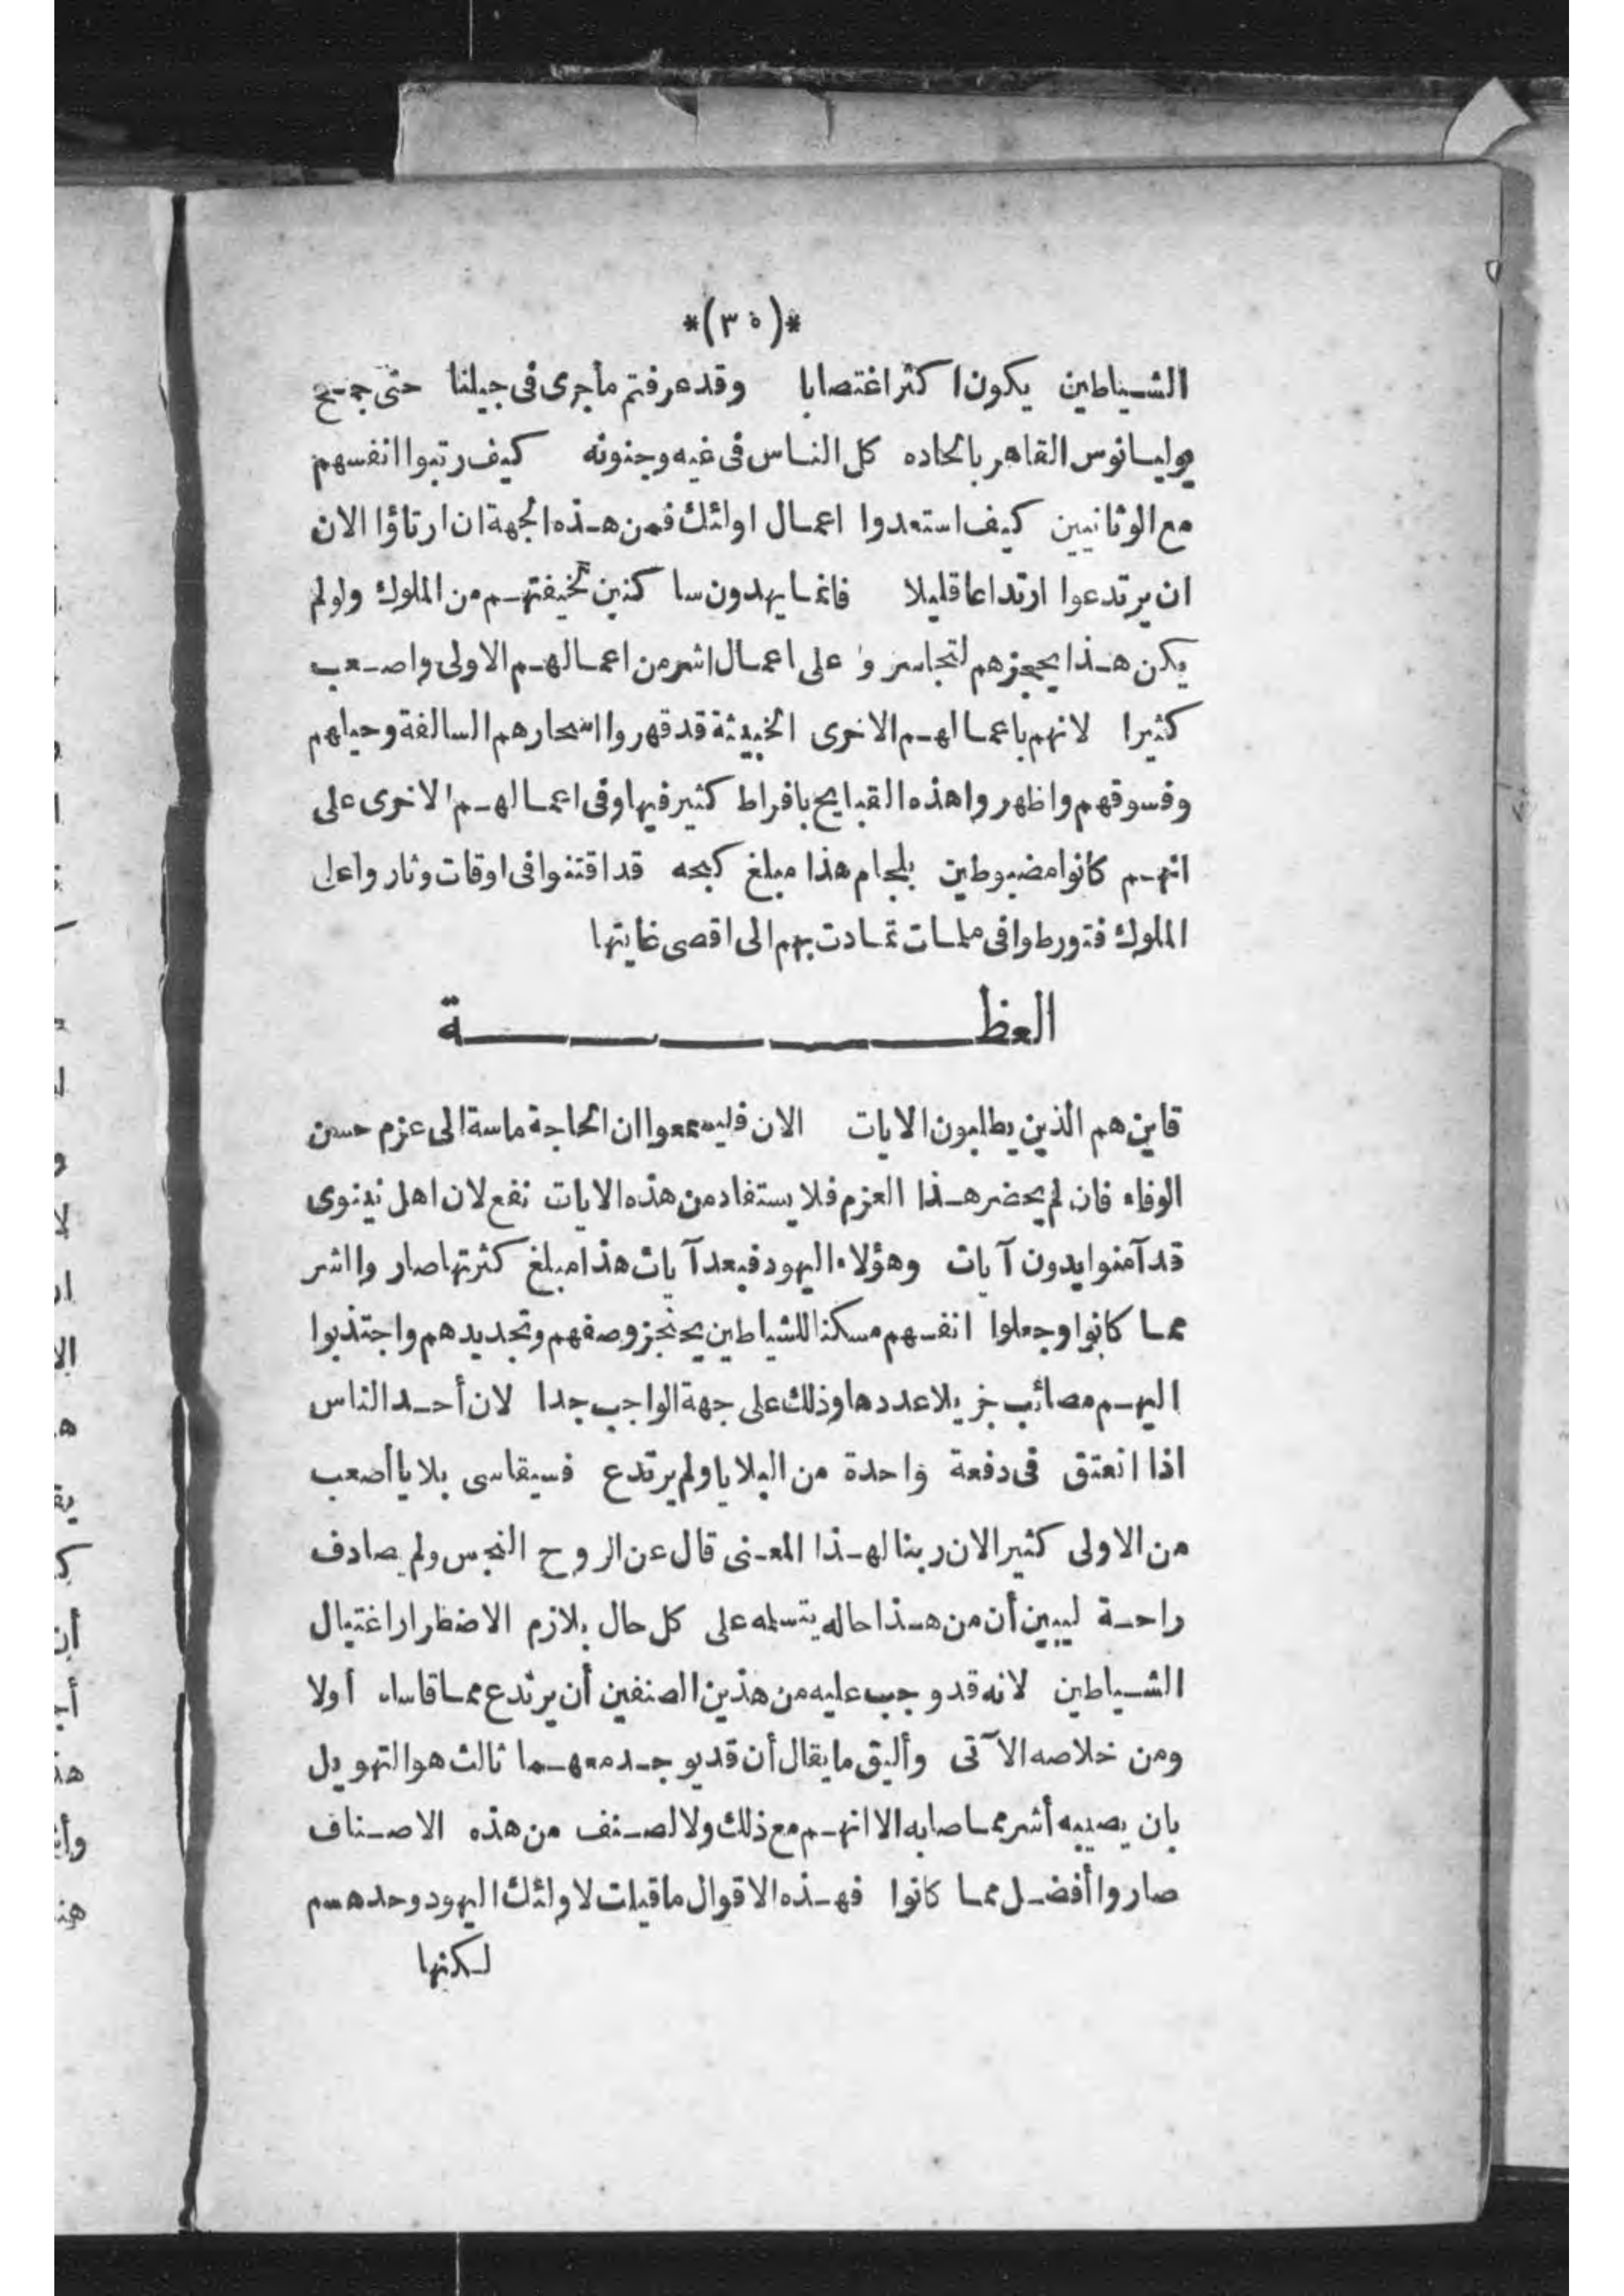 *(٣٥)*
الشياطين يكون اكثر اغتصابا وقد عرفتم ماجرى فى جيلنا حتى جمح
يوليانوس القاهر بالحاده كل الناس فى غيه وجنونه كيف رتبوا انفسهم
مع الوثانيين كيف استعدوا اعمال اولئك فمن هذه الجهة ان ارتاؤا الان
ان يرتدعوا ارتداعا قليلا فانما يهدون ساكنين لخيفتهم من الملوك ولولم
يكن هذا يحجزهم لتجاسروا على اعمال اشر من اعمالهم الاولى واصعب
كثيرا لانهم باعمالهم الاخرى الخبيثة قد قهروا اسحارهم السالفة وحيلهم
وفسوقهم واظهروا هذه القبايح بافراط كثير فيها وفى اعمالهم الاخرى على
انهم كانوا مضبوطين بلجام هذا مبلغ كبحه قد اقتنوا فى اوقات وثاروا على
الملوك فتورطوا فى ملمات تمادت بهم الى اقصى غايتها
العظة
فاين هم الذين يطلبون الايات الان فليسمعوا ان الحاجة ماسة الى عزم حسن
الوفاء فان لم يحضر هذا العزم فلا يستفاد من هذه الايات نفع لان اهل نينوى
قد آمنوا بدون آيات وهؤلاء اليهود فبعد آيات هذا مبلغ كثرتها صاروا اشر
مما كانوا وجعلوا انفسهم مسكنا للشياطين يحتجز وصفهم وتحديدهم واجتذبوا
اليهم مصائب جزيلا عددها وذلك على جهة الواجب جدا لان أحد الناس
اذا انعتق فى دفعة واحدة من البلايا ولم يرتدع فسيقاسى بلايا أصعب
من الاولى كثيرا لان ربنا لهذا المعنى قال عن الروح النجس ولم يصادف
راحة ليبين أن من هذا حاله يتسلمه على كل حال بلازم الاضطرار اغتيال
الشياطين لانه قد وجب عليه من هذين الصنفين أن يرتدع مما قاساه أولا
ومن خلاصه الآتى وأليق مايقال أن قد يوجد معهما ثالث هو التهويل
بان يصيبه أشر مما صابه الا انهم مع ذلك ولا لصنف من هذه الاصناف
صاروا أفضل مما كانوا فهذه الاقوال ما قيلت لاولئك اليهود وحدهم
لكنها